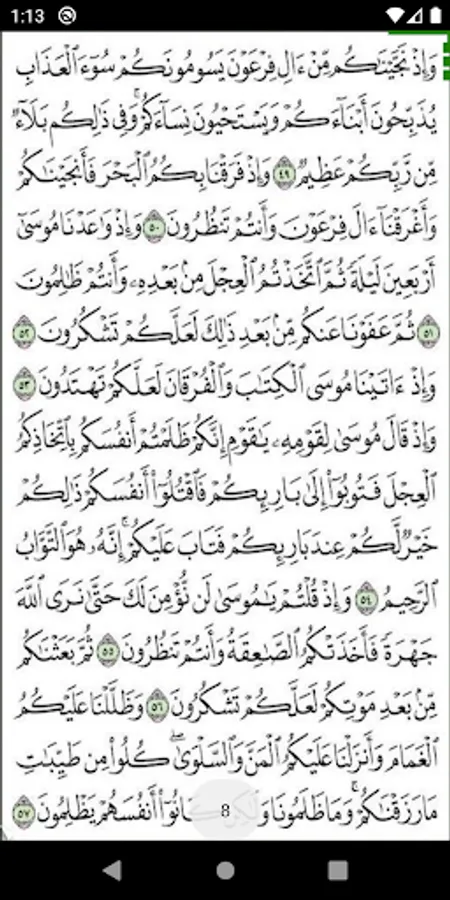 1:13
وَإِذْ نَجَّيْنَٰكُم مِّنْ ءَالِ فِرْعَوْنَ يَسُومُونَكُمْ سُوٓءَ ٱلْعَذَابِ
يُذَبِّحُونَ أَبْنَآءَكُمْ وَيَسْتَحْيُونَ نِسَآءَكُمْ ۚ وَفِى ذَٰلِكُم بَلَآءٌ
مِّن رَّبِّكُمْ عَظِيمٌ ٤٩ وَإِذْ فَرَقْنَا بِكُمُ ٱلْبَحْرَ فَأَنجَيْنَٰكُمْ
وَأَغْرَقْنَآ ءَالَ فِرْعَوْنَ وَأَنتُمْ تَنظُرُونَ ٥٠ وَإِذْ وَٰعَدْنَا مُوسَىٰٓ
أَرْبَعِينَ لَيْلَةً ثُمَّ ٱتَّخَذْتُمُ ٱلْعِجْلَ مِنۢ بَعْدِهِۦ وَأَنتُمْ ظَٰلِمُونَ
٥١ ثُمَّ عَفَوْنَا عَنكُم مِّنۢ بَعْدِ ذَٰلِكَ لَعَلَّكُمْ تَشْكُرُونَ ٥٢
وَإِذْ ءَاتَيْنَا مُوسَى ٱلْكِتَٰبَ وَٱلْفُرْقَانَ لَعَلَّكُمْ تَهْتَدُونَ ٥٣
وَإِذْ قَالَ مُوسَىٰ لِقَوْمِهِۦ يَٰقَوْمِ إِنَّكُمْ ظَلَمْتُمْ أَنفُسَكُم بِٱتِّخَاذِكُمُ
ٱلْعِجْلَ فَتُوبُوٓا۟ إِلَىٰ بَارِئِكُمْ فَٱقْتُلُوٓا۟ أَنفُسَكُمْ ذَٰلِكُمْ
خَيْرٌ لَّكُمْ عِندَ بَارِئِكُمْ فَتَابَ عَلَيْكُمْ ۚ إِنَّهُۥ هُوَ ٱلتَّوَّابُ
ٱلرَّحِيمُ ٥٤ وَإِذْ قُلْتُمْ يَٰمُوسَىٰ لَن نُّؤْمِنَ لَكَ حَتَّىٰ نَرَى ٱللَّهَ
جَهْرَةً فَأَخَذَتْكُمُ ٱلصَّٰعِقَةُ وَأَنتُمْ تَنظُرُونَ ٥٥ ثُمَّ بَعَثْنَٰكُم
مِّنۢ بَعْدِ مَوْتِكُمْ لَعَلَّكُمْ تَشْكُرُونَ ٥٦ وَظَلَّلْنَا عَلَيْكُمُ
ٱلْغَمَامَ وَأَنزَلْنَا عَلَيْكُمُ ٱلْمَنَّ وَٱلسَّلْوَىٰ ۖ كُلُوا۟ مِن طَيِّبَٰتِ
مَا رَزَقْنَٰكُمْ ۖ وَمَا ظَلَمُونَا وَلَٰكِن كَانُوٓا۟ أَنفُسَهُمْ يَظْلِمُونَ ٥٧
8